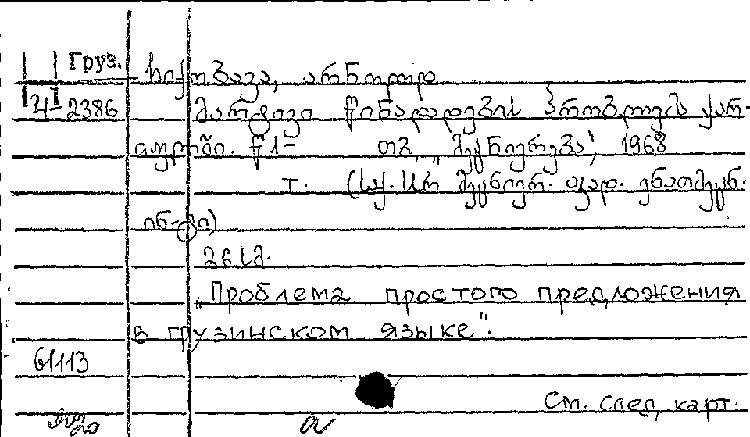 Груз.
ჩიქობავა, არნოლდ
Ч-2386
მარტივი წინადადების პრობლემა ქარ-
თულში. წ 1- თბ. „მეცნიერება“, 1968
т. (საქ. სსრ მეცნიერ. აკად. ენათმეცნ.
ინ-ტი)
26 სმ.
„Проблема простого предложения
в грузинском языке".
61113
См. след, карт.
а